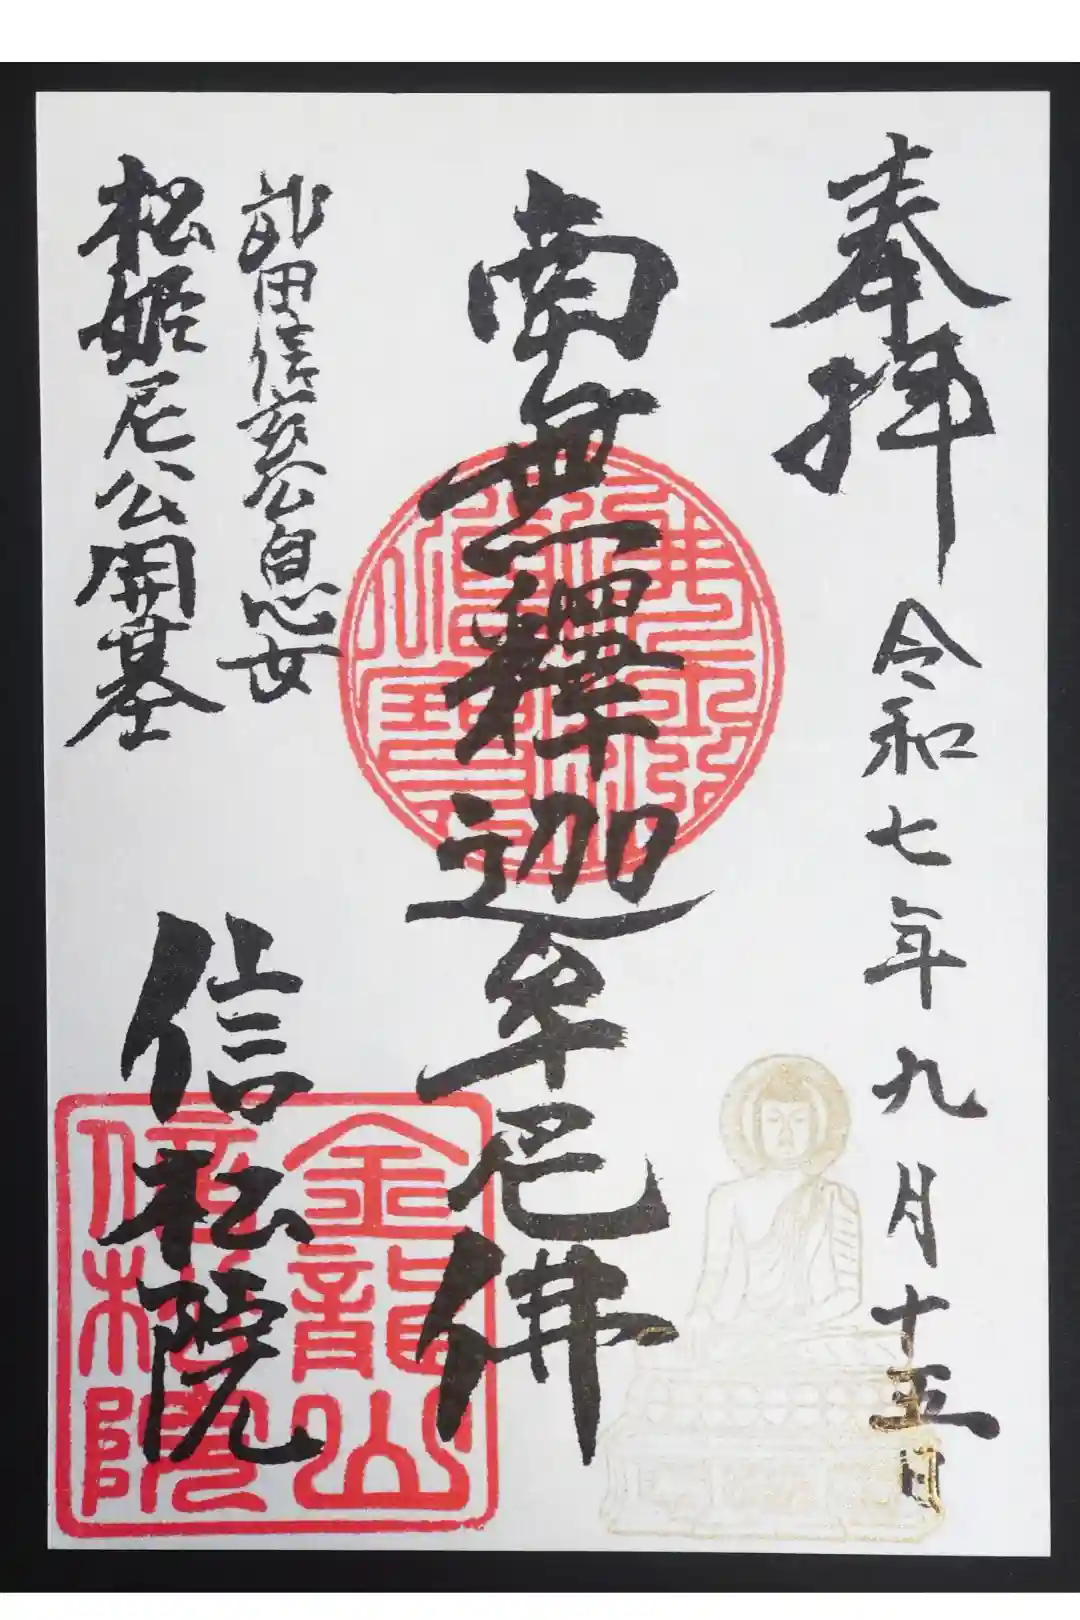 奉拝
令和七年九月十五日
南無釋迦牟尼佛
武田信玄公息女
松姫尼公開基
信松院
金龍山
信松院